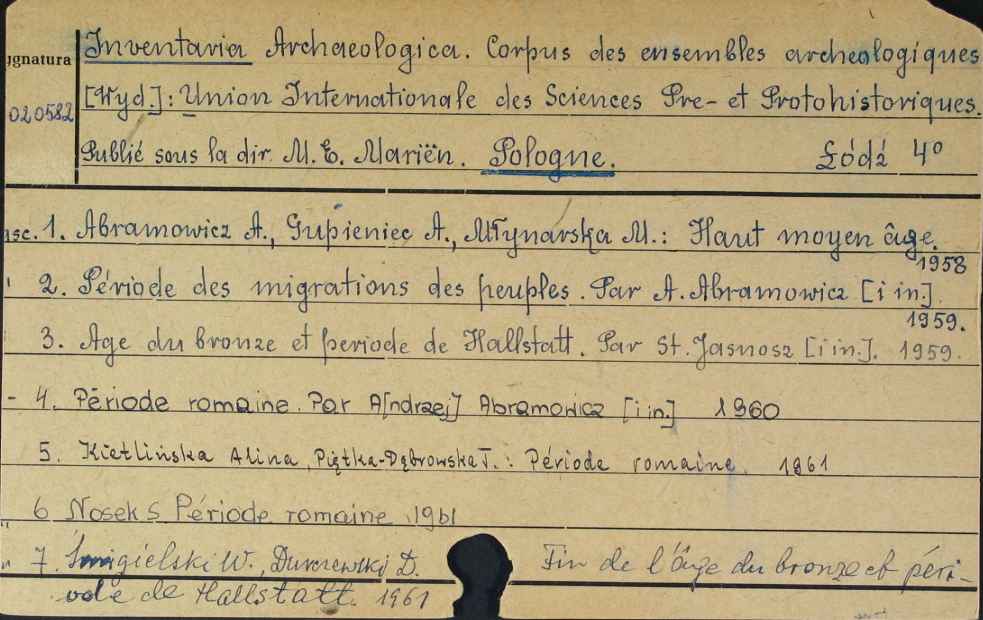 Inventaria Archaeologica. Corpus des ensembles archeologiques
ygnatura
[Wyd.]: Union Internationale des Sciences Pre- et Protohistoriques.
020582
Publié sous la dir. M. E. Mariën. Pologne. Łódź 4°
asc. 1. Abramowicz A., Gupieniec A., Młynarska M.: Haut moyen âge.
1958
2. Période des migrations des peuples. Par A. Abramowicz [i in].
1959.
3. Age du bronze et periode de Hallstatt. Par St. Jasnosz [i in.]. 1959.
- 4. Période romaine. Par A[ndrzej] Abramowicz [i in.] 1960
5. Kietlińska Alina, Piętka-Dąbrowska T.: Période romaine. 1961
" 6 Nosek S Période romaine 1961
" 7. Śmigielski W., Durczewski D. Fin de l'âge du bronze et péri-
ode de Hallstatt. 1961